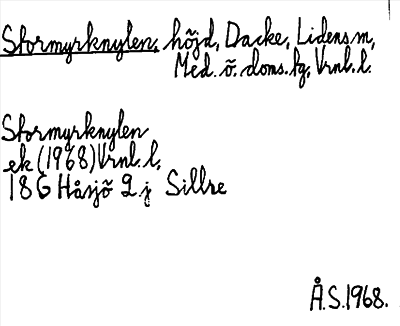 Stormyrknylen, höjd, Dacke, Lidens sn,
Med. ö. doms. fg, Vrnl. l.
Stormyrknylen
ek (1968) Vrnl. l,
18 G Håsjö 2 j Sillre
Å.S. 1968.